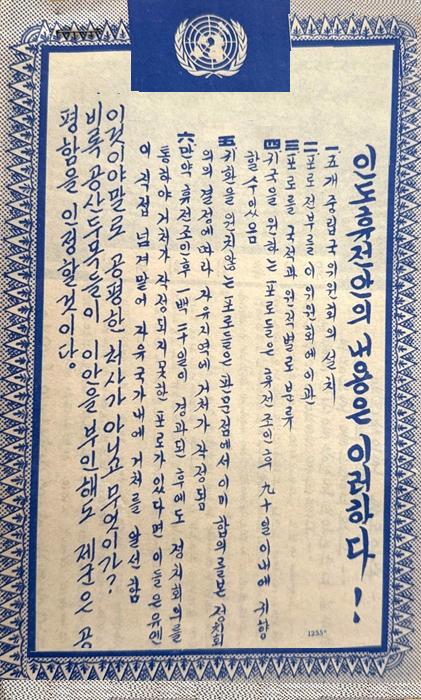 인도휴전안의 내용은 이러하다!
一 五개 중립국위원회의 설치
二 포로 전부를 이 위원회에 이관
三 포로를 국적과 원적별로 분류
四 귀국을 원하는 포로들은 휴전조인후 九十일이내에 귀향
할수있음
五 귀화을 원치않는 포로들은 판문점에서 이미 합의를본 정치회
의의 결정에따라 자유지역에 거처가 작정됨
六 만약 휴전조인후 一백二十일이 경과된 후에도 정치회의를
통하야 거처가 작정되지못한 포로가 있다면 이들은유엔
이 직접 넘겨맡어 자유국가내에 거처를 알선함
이것이야말로 공평한 처사가 아니고 무엇이가?
비록 공산두목들이 이안을 부인해도 제군은 공
평함을 인정할것이다.